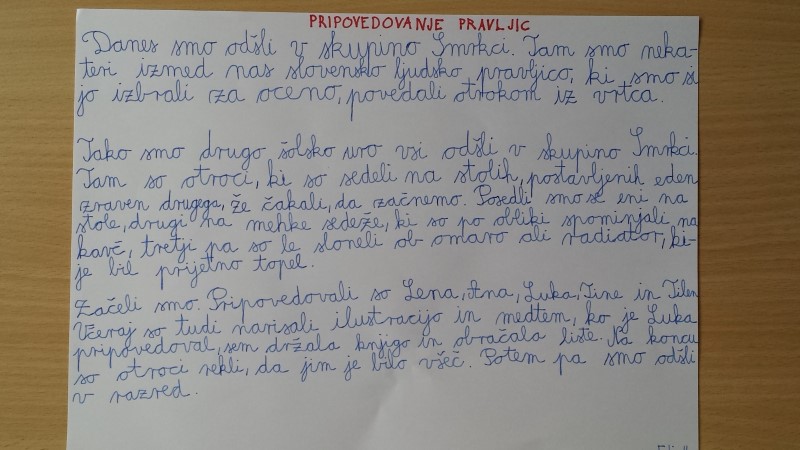 PRIPOVEDOVANJE PRAVLJIC
Danes smo odšli v skupino Smrkci. Tam smo neka-
teri izmed nas slovensko ljudsko pravljico, ki smo si
jo izbrali za oceno, povedali otrokom iz vrtca.
Tako smo drugo šolsko uro vsi odšli v skupino Smrkci.
Tam so otroci, ki so sedeli na stolih, postavljenih eden
zraven drugega, že čakali, da začnemo. Posedli smo se eni na
stole, drugi na mehke sedeže, ki so po obliki spominjali na
kavč, tretji pa so le sloneli ob omaro ali radiator, ki
je bil prijetno topel.
Začeli smo. Pripovedovali so Lena, Ana, Luka, Tine in Tilen.
Včeraj so tudi narisali ilustracijo in medtem, ko je Luka
pripovedoval, sem držala knjigo in obračala liste. Na koncu
so otroci rekli, da jim je bilo všeč. Potem pa smo odšli
v razred.